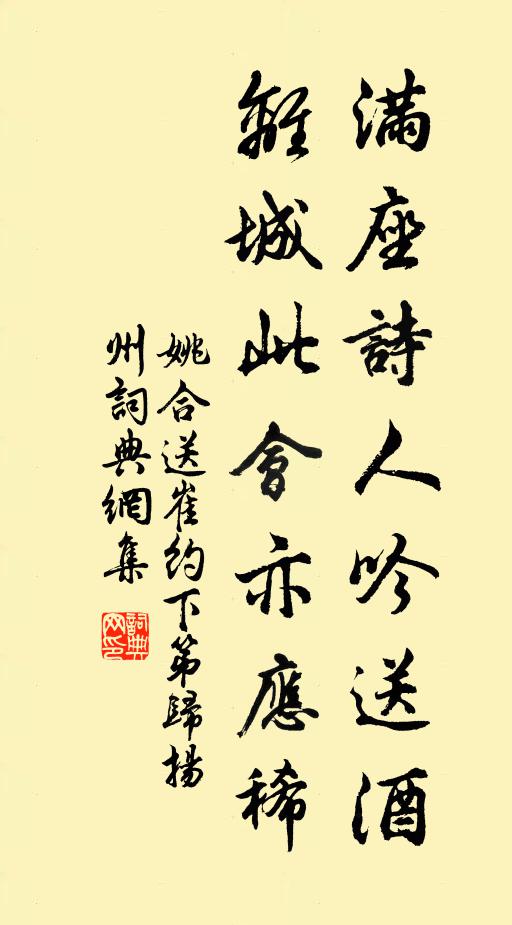 滿座詩人吟送酒
離城此會亦應稀
姚合送崔約下第歸揚
州詞典網集
詞典
网印